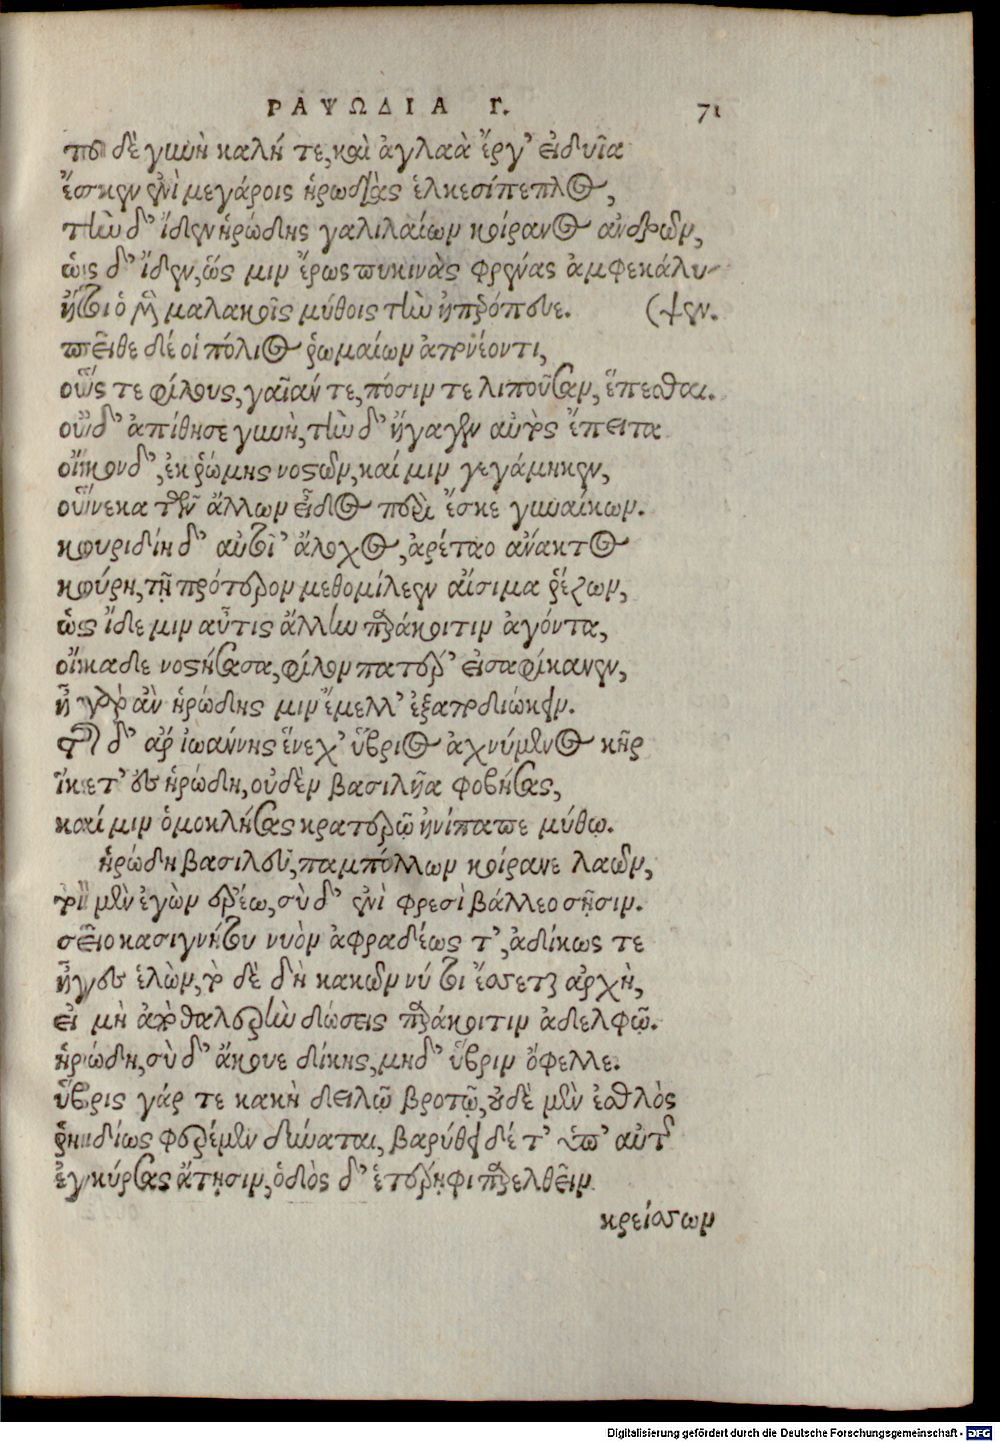 ΡΑΨΩΔΙΑ Γ. 71
τοῦ δὲ γυνὴ καλή τε, καὶ ἀγλαὰ ἔργ' εἰδυῖα
ἔσκεν ἐνὶ μεγάροις ἡρωδιὰς ἑλκεσίπεπλος,
τὴν δ' ἴδεν ἡρώδης γαλιλαίων κοίρανος ἀνδρῶν,
ὡς δ' ἴδεν, ὥς μιν ἔρως πυκινὰς φρένας ἀμφεκάλυ-
ἤτοι ὁ μὲν μαλακοῖς μύθοις τὴν ἠπερόπευε. (ψεν.
πεῖθε δέ οἱ πόλιος ῥωμαίων ἀπονέοντι,
οὕς τε φίλους, γαῖάν τε, πόσιν τε λιποῦσαν, ἕπεσθαι.
οὐδ' ἀπίθησε γυνὴ, τὴν δ' ἤγαγεν αὐτὸς ἔπειτα
οἴκονδ', ἐκ ῥώμης νοστῶν, καί μιν γεγάμηκεν,
οὕνεκα τῶν ἄλλων εἶδος περὶ ἔσκε γυναίκων.
κουριδίη δ' αὐτοῖ' ἄλοχος, ἀρέταο ἄνακτος
κούρη, τῇ πρότερον μεθομίλεεν αἴσιμα ῥέζων,
ὡς ἴδε μιν αὖτις ἄλλην παράκοιτιν ἀγόντα,
οἴκαδε νοστήσασα, φίλον πατέρ' εἰσαφίκανεν,
ἦ γὰρ ἂν ἡρώδης μιν ἔμελλ' ἐξαποδιώκειν.
τοῦ δ' ἄρ ἰωάννης ἕνεχ' ὕβριος ἀχνύμενος κῆρ
ἵκετ' ἐς ἡρώδην, οὐδὲν βασιλῆα φοβήσας,
καί μιν ὁμοκλήσας κρατερῷ ἠνίπαπε μύθῳ.
ἡρώδη βασιλεῦ, παμπόλλων κοίρανε λαῶν,
τοι μὲν ἐγὼν ἐρέω, σὺ δ' ἐνὶ φρεσὶ βάλλεο σῇσιν.
σεῖο κασιγνήτου νυὸν ἀφραδέως τ', ἀδίκως τε
ἦγες ἑλὼν, τὸ δὲ δὴ κακῶν νύ τοι ἔσσεται ἀρχὴ,
εἰ μὴ ἀποθαλερὴν δώσεις παράκοιτιν ἀδελφῷ.
ἡρώδη, σὺ δ' ἄκουε δίκης, μηδ' ὕβριν ὄφελλε.
ὕβρις γάρ τε κακὴ δειλῷ βροτῷ, οὐδὲ μὲν ἐσθλὸς
ῥηιδίως φερέμεν δύναται, βαρύθει δέ τ' ὑπ' αὐτῆς
ἐγκύρσας ἄτῃσιν, ὁδὸς δ' ἑτέρηφι παρελθεῖν
κρείσσων